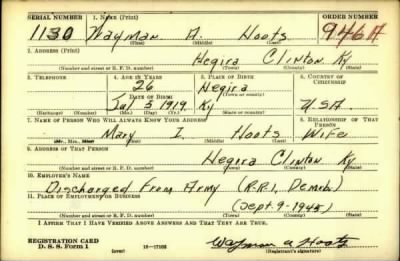 SERIAL NUMBER 1. NAME (Print) ORDER NUMBER
1130 Wayman A. Hoots 946A
(First) (Middle) (Last)
2. ADDRESS (Print)
Hegira Clinton Ky
(Number and street or R. F. D. number) (Town) (County) (State)
3. TELEPHONE 4. AGE IN YEARS 5. PLACE OF BIRTH 6. COUNTRY OF CITIZENSHIP
26 Hegira
DATE OF BIRTH (Town or county)
Jul 5 1919 Ky U.S.A.
(Exchange) (Number) (Mo.) (Day) (Yr.) (State or country)
7. NAME OF PERSON WHO WILL ALWAYS KNOW YOUR ADDRESS 8. RELATIONSHIP OF THAT PERSON
Mary I. Hoots Wife
(Mr., Mrs., Miss) (First) (Middle) (Last)
9. ADDRESS OF THAT PERSON
Hegira Clinton Ky
(Number and street or R. F. D. number) (Town) (County) (State)
10. EMPLOYER'S NAME
Discharged From Army (R.R.1, Demob)
11. PLACE OF EMPLOYMENT OR BUSINESS
(Sept. 9-1945)
(Number and street or R. F. D. number) (Town) (County) (State)
I AFFIRM THAT I HAVE VERIFIED ABOVE ANSWERS AND THAT THEY ARE TRUE.
REGISTRATION CARD
D. S. S. Form 1 (over) 16-17105 Wayman A Hoots
(Registrant's signature)